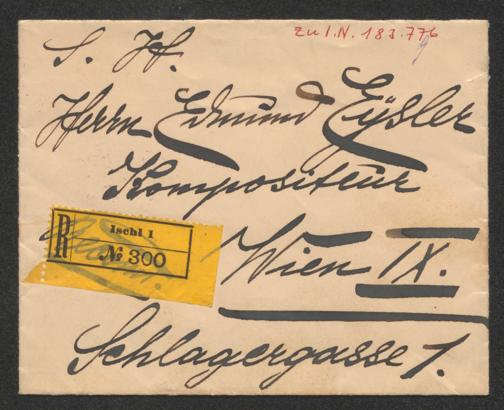 zu I.N. 183.776
S. H.
Herrn Edmund Eysler
Kompositeur
R
Ischl 1
№ 300
Wien IX.
Schlagergasse 1.